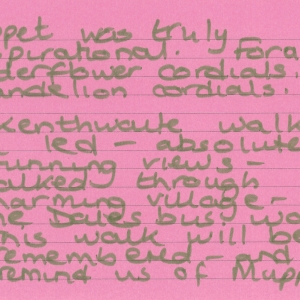 ppet was truly
spirational. Fora
derflower cordials.
andelion cordials.
kenthwaite walk
led - absolute
tunning views -
alked through
harming village -
he Dales bus, wa
his walk will be
remembered - and
remind us of Mupp